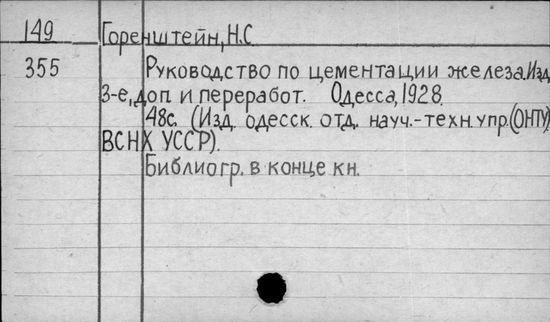 149 Горенштейн, Н.С.
355 Руководство по цементации железа. Изд.
3-е, доп. и переработ. Одесса, 1928.
48с. (Изд. одесск. отд. науч.-техн. упр. (ОНТУ)
ВСНХ УССР).
Библиогр. в конце кн.